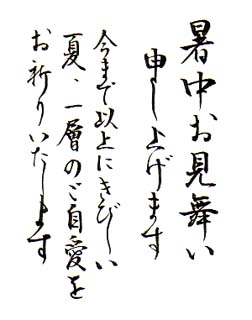 暑中お見舞い
申し上げます
今まで以上にきびしい
夏、一層のご自愛を
お祈りいたします